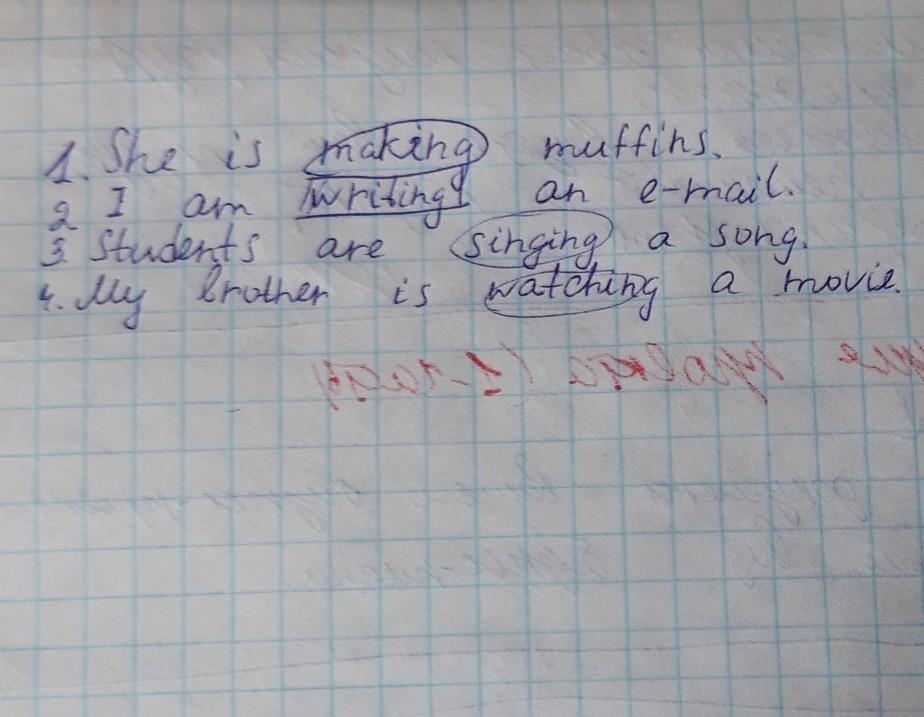 1. She is making muffins.
2 I am writing an e-mail.
3. Students are singing a song.
4. My brother is watching a movie.